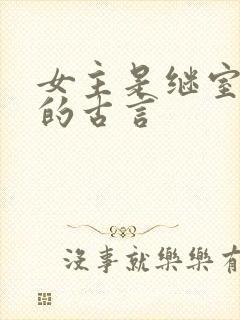 女主是继室
的古言
沒事就樂樂有